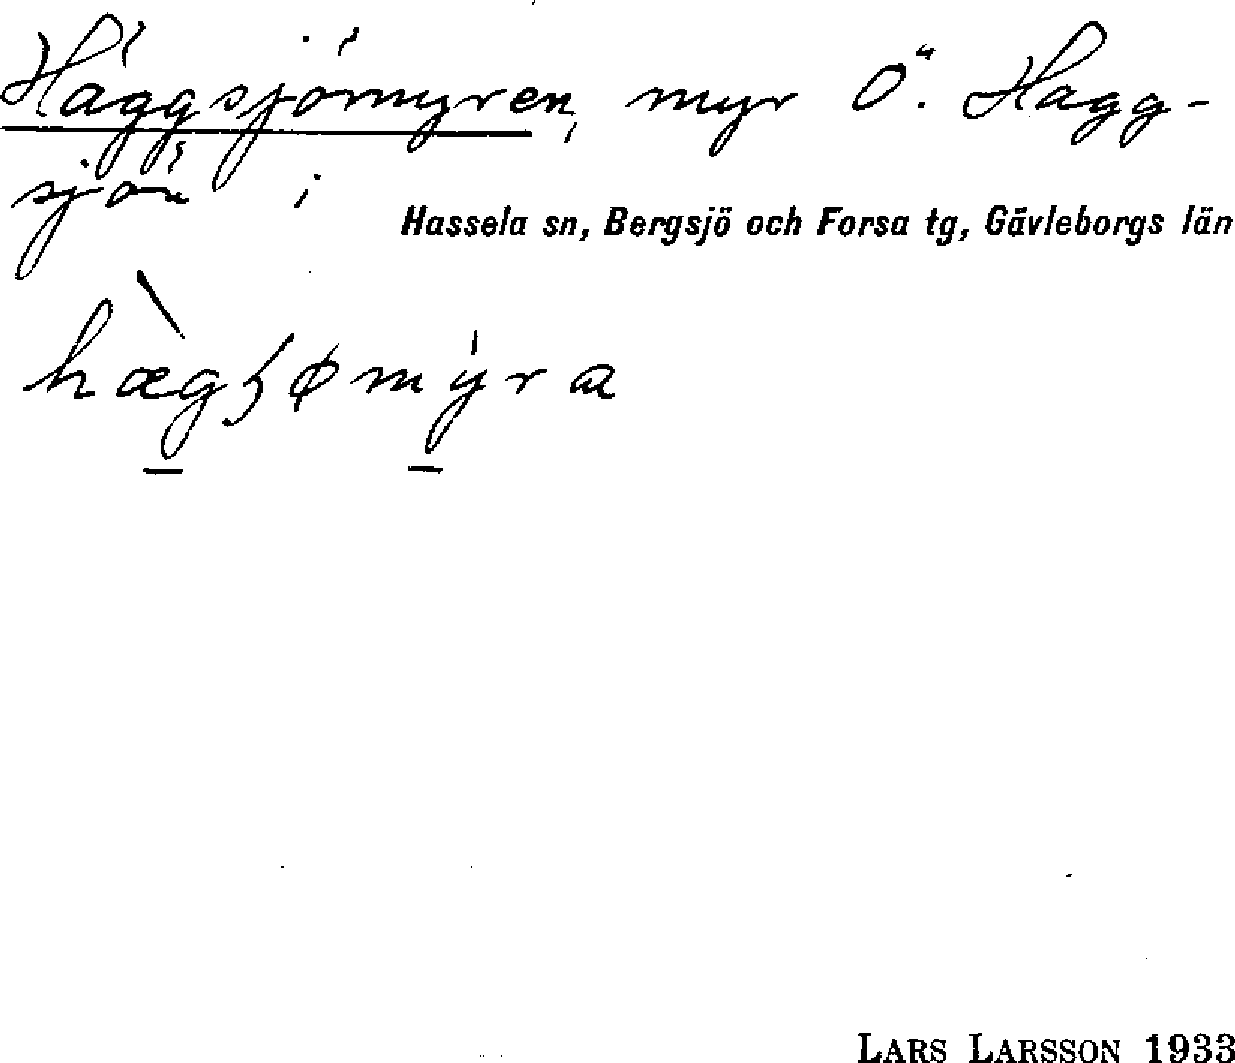 Häggsjömyren, myr Ö. Hägg-
sjön i
Hassela sn, Bergsjö och Forsa tg, Gävleborgs län
hæ̀gʂømýra
LARS LARSSON 1933